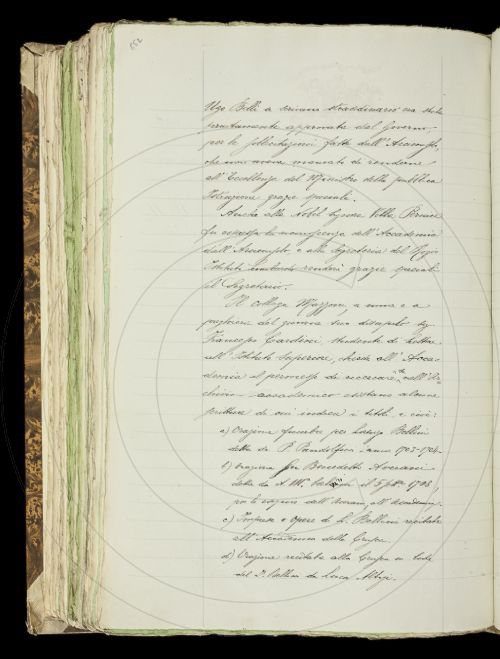 652
Ugo Billi a scrivano straordinario era stata
recentemente approvata dal Governo,
per le sollecitazioni fatte dall'Arciconsolo,
che non aveva mancato di renderne
all'Eccellenza del Ministro della pubblica
Istruzione grazie speciali.
Anche alla Nobil Signora Villa
fu la dell'Accademia
dall'Arciconsolo, e alla Segreteria del Regio
Istituto lombardo rendeva grazie speciali
il Segretario.
Il collega Mazzoni, a nome e a
preghiera del giovane suo discepolo Sig.
Francesco Cardini, studente di Lettere
all'Istituto Superiore, chiese all'Acca-
demia il permesso di ricercare se nell'Ar-
chivio accademico esistano alcune
scritture di cui indicò i titoli, e cioè:
a) Orazione funebre per Lorenzo Bellini
detta da P. Pandolfini anno 1703-1704.
b) Orazione fu Benedetto Averani
detta da A. M. il 5 1708,
per le esequie dell'Averani, all'Accademia.
c) Imprese e opere di L. Bellini recitate
all'Accademia della Crusca.
d) Orazione recitata alla Crusca in lode
del D. Bellini da Luca Albizi.